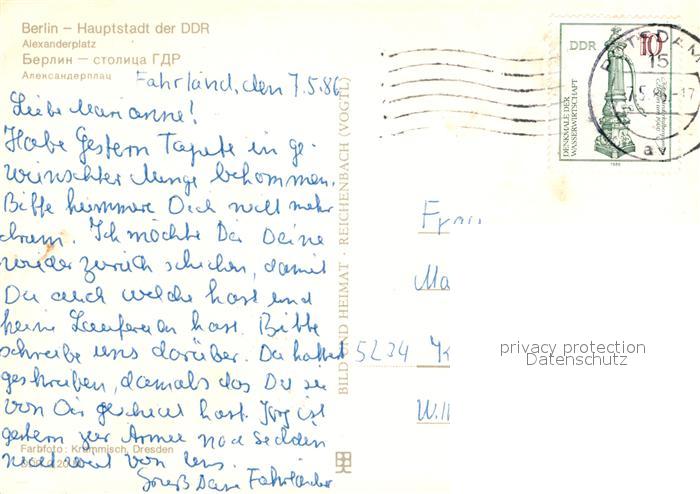 Berlin – Hauptstadt der DDR
Alexanderplatz
Берлин — столица ГДР
Александерплац
Fahrland, den 7.5.86
Liebe Marianne!
Habe gestern Tapete in ge-
wünschter Menge bekommen.
Bitte kümmere Dich nicht mehr
drum. Ich möchte Dir Deine
wieder zurück schicken, damit
Du auch welche hast und
keine Lauferein hast. Bitte
schreibe uns darüber. Du hattest
geschrieben, damals das Du sie
von Dir geholt hast. Jörg ist
gestern zur Armee nach
nicht weit von uns.
Gruß Deine Fahrlander
Farbfoto: Krammisch, Dresden
BILD UND HEIMAT · REICHENBACH (VOGTL)
DDR
10
DENKMALE DER
WASSERWIRTSCHAFT
1986
POTSDAM
15
7.5.86-17
av
Frau
Ma
5234 K
privacy protection
Datenschutz